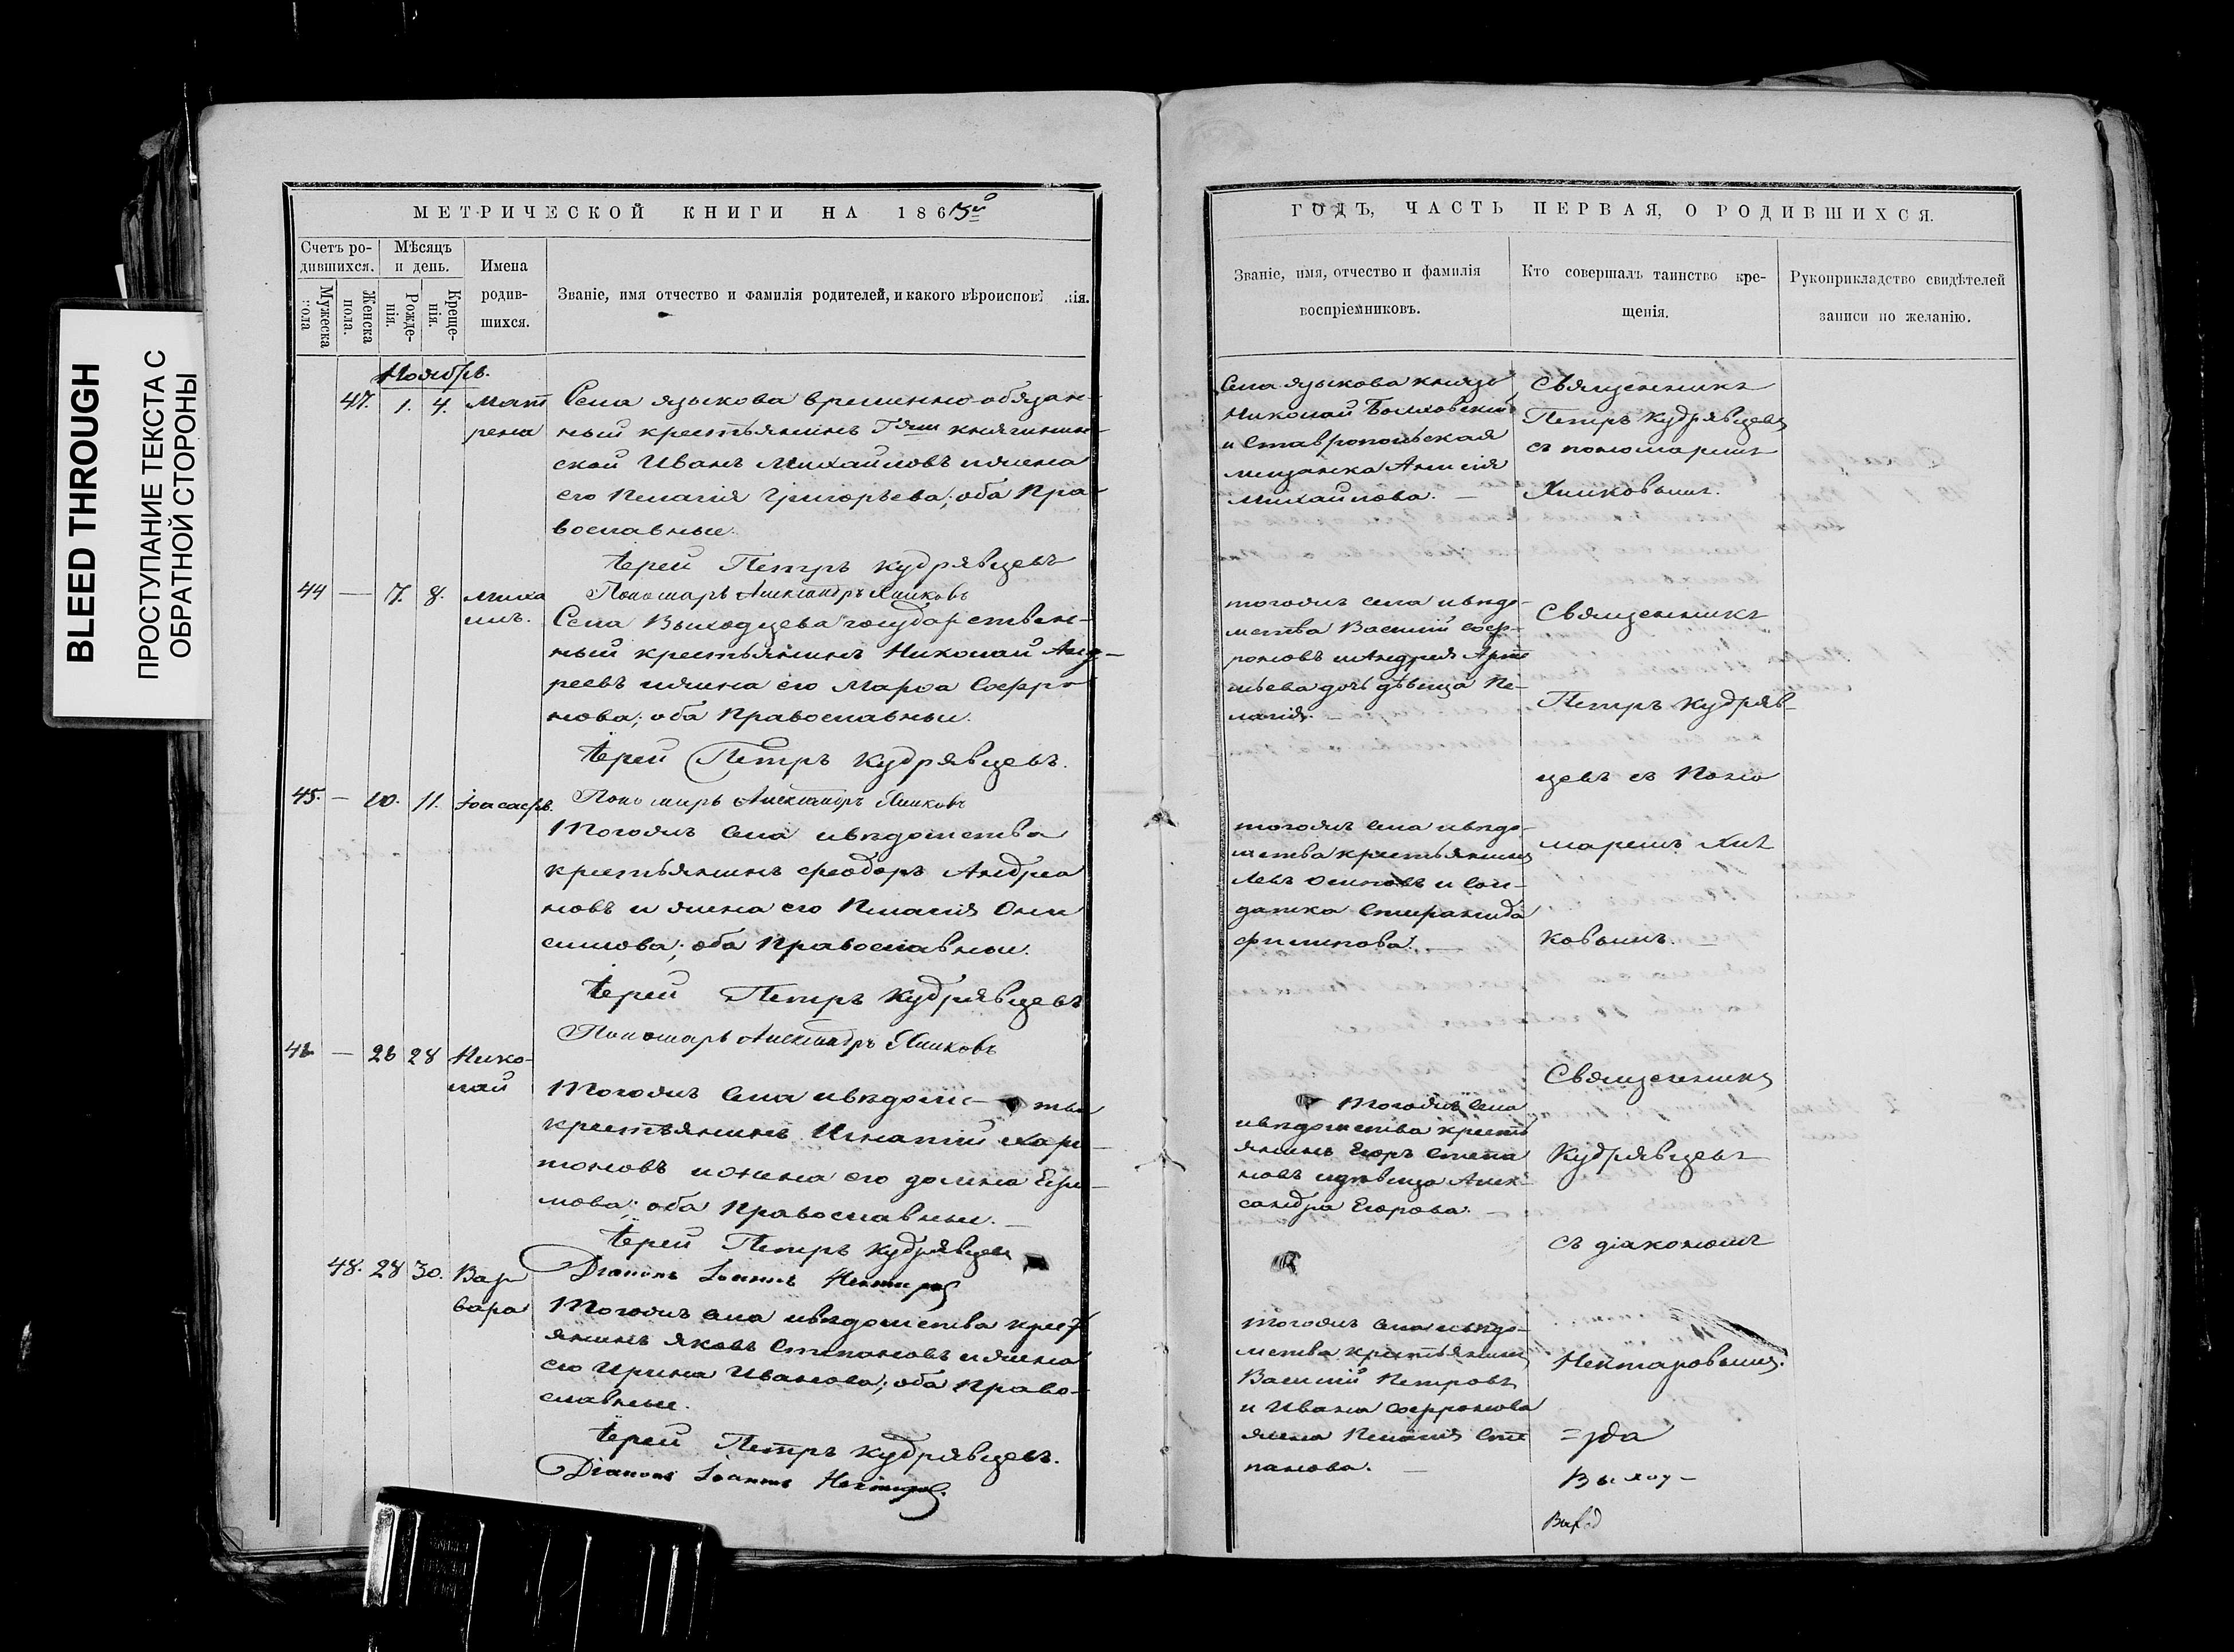 BLEED THROUGH
ПРОСТУПАНИЕ ТЕКСТА С
ОБРАТНОЙ СТОРОНЫ
МЕТРИЧЕСКОЙ КНИГИ НА 1865й
Счетъ ро-
дившихся.
Мужеска
пола
Женска
пола.
Мѣсяцъ
и день.
Рожде-
нія.
Креще-
нія.
Имена
родив-
шихся.
Званіе, имя отчество и фамилія родителей, и какого вѣроисповѣ нія.
Ноябрь.
47. 1. 4. Мат
рена
Села Языкова временно-обязан-
ный крестьянинъ Г княгинин-
ской Иванъ Михайловъ и жена
его Пелагія Григорьева; оба Пра-
вославные.
Іерей Петръ Кудрявцевъ
Пономарь Александръ Хилковъ
44 — 7. 8. Миха
илъ.
Села Выходцева государствен-
ный крестьянинъ Николай Анд-
реевъ и жена его Марѳа Софро
нова; оба Православные.
Іерей Петръ Кудрявцевъ.
Пономарь Александръ Хилковъ
45. — 10. 11. Іоасафъ.
Тогожъ села и вѣдомства
крестьянинъ Феодоръ Андреа
новъ и жена его Пелагія Они
симова; оба Православные.
Іерей Петръ Кудрявцевъ
Пономарь Александръ Хилковъ
46 — 26 28 Нико-
лай
Тогожъ села и вѣдомс- тва
крестьянинъ Игнатій Хари-
тоновъ и жена его Домна Ефи-
мова; оба Православные. —
Іерей Петръ Кудрявцевъ
Діаконъ Іоаннъ Нектаровъ
48. 28 30. Вар
вара
Тогожъ села и вѣдомства крест
янинъ Яковъ Степановъ и жена
его Ирина Иванова; оба Право-
славные.
Іерей Петръ Кудрявцевъ.
Діаконъ Іоаннъ Нектаровъ.
ГОДЪ, ЧАСТЬ ПЕРВАЯ, О РОДИВШИХСЯ.
Званіе, имя, отчество и фамилія
воспріемниковъ.
Кто совершалъ таинство кре-
щенія.
Рукоприкладство свидѣтелей
записи по желанію.
Села Языкова князь
Николай Болховский
и Ставропольская
мещанка Анисія
Михайлова. —
Священникъ
Петръ Кудрявцевъ
съ пономаремъ
Хилковымъ.
тогожъ села и вѣдо-
мства Василій Соф-
роновъ и Андрея Арте
мьева дочь дѣвица Пе-
лагія.
Священникъ
Петръ Кудряв-
цевъ съ Поно
маремъ Хил
ковымъ. —
тогожъ села и вѣдо-
мства крестьянинъ
Левъ Осиповъ и Сол-
датка Спиранида
Филипова. —
Тогожъ села
и вѣдомства кресть
янинъ Егоръ Степа
новъ и дѣвица Алек-
сандра Егорова. —
Священникъ
Кудрявцевъ
съ діакономъ
Нектаровымъ.
тогожъ села и вѣдо-
мства крестьянинъ
Василій Петровъ
и Ивана Софронова
жена Пелагія Сте
панова. —